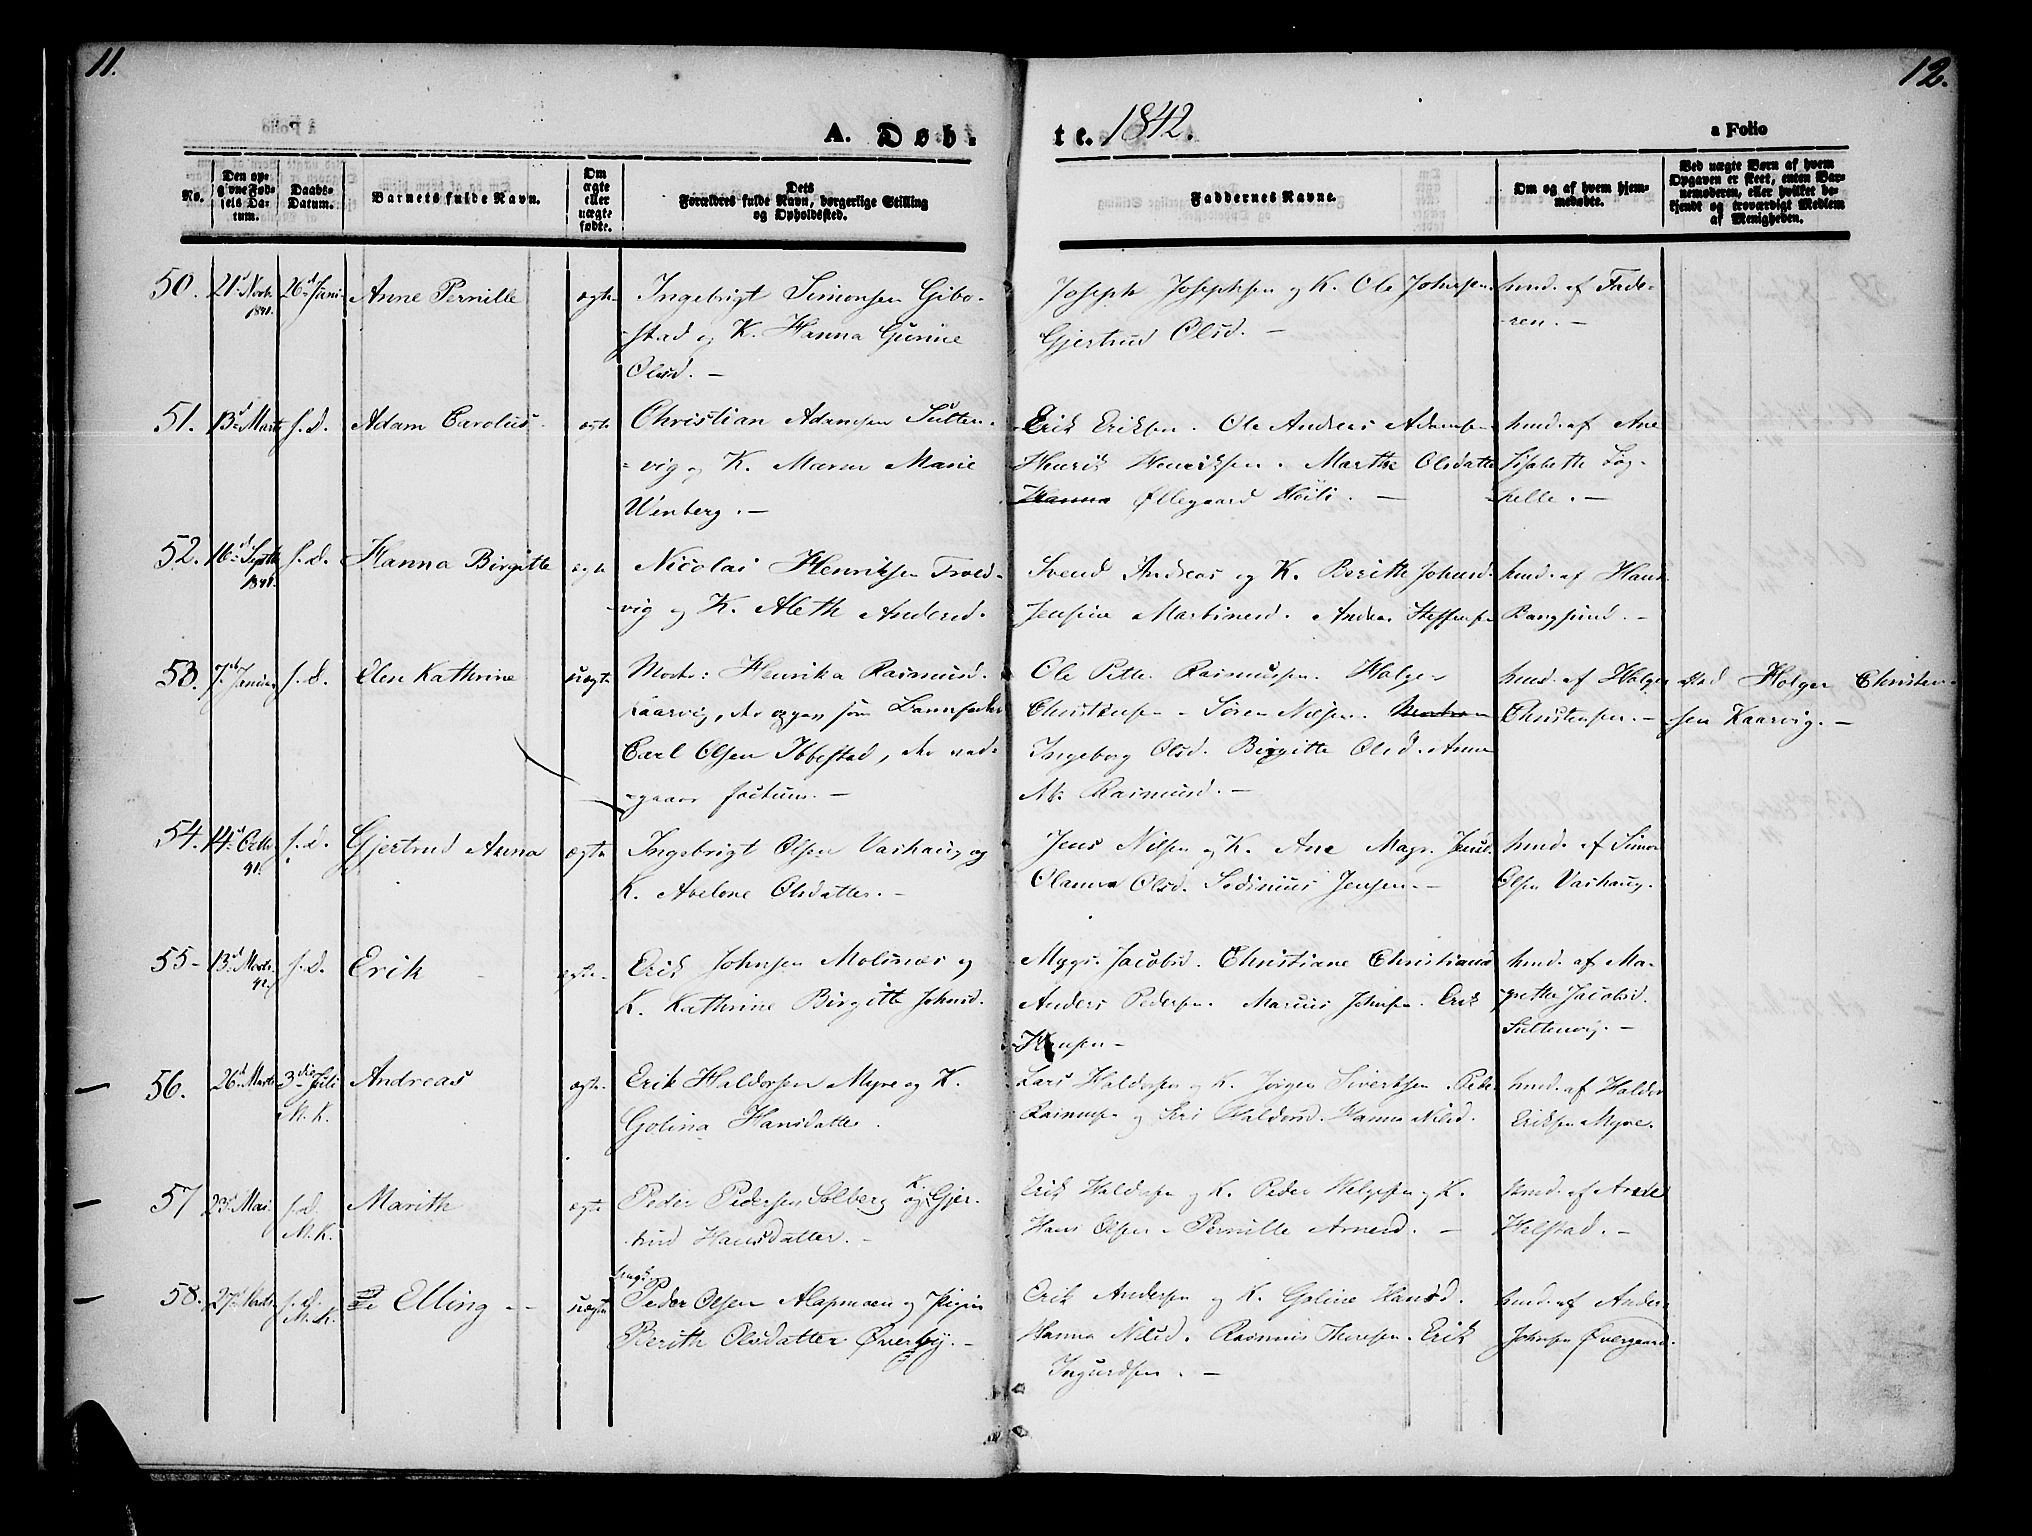 11.
12.
A. Døb-
te. 1842.
a Folio
No.
Den op-
givne Fød-
sels Da-
tum.
Daabs-
Datum.
Barnets fulde Navn.
Om
ægte
eller
uægte
fødte.
Dets
Forældres fulde Navn, borgerlige Stilling
og Opholdssted.
Faddernes Navne.
Om og af hvem hjem-
medøbte.
Ved uægte Børn af hvem
Opgaven er skeet, enten Bar-
nemoderen, eller hvilket be-
kjendt og troværdigt Medlem
af Menigheden.
50. 21d Novb. 1841. 26d Juni Anne Pernille ægte
Ingebrigt Simonsen Gibo-
stad og K. Hanna Gurine
Olsd. –
Joseph Josephsen og K. Ole Johnsen
Gjertrud Olsd. –
hmd. af Fade-
ren. –
51. 13d Marts s. d. Adam Carolus ægte
Christian Adamsen Sulten-
vig og K. Maren Marie
Wenberg. –
Erik Eriksen. Ole Andreas Adamsen
Henrik Henriksen. Marthe Olsdatter
Hanna Øllegaard –
hmd. af Ane
Lisabette
52. 16d Septb. 1841. s. d. Hanna Birgitte ægte
Nicolai Henriksen Trold-
vig og K. Aleth Andersd.
Svend Andreas og K. Berith Johnsd.
Jensine Martinesd. Andreas Steffensen
hmd. af Hans
Rangsund. –
53. 7d Januar s. d. Elen Kathrine uægte
Moder: Henrika Rasmusd.
Kaarvig, der opgav som Barnefader
Carl Olsen Ibbestad, der ved-
gaaer factum. –
Ole Petter Rasmussen. Holger
Christensen – Søren Nilsen.
Ingeborg Olsd. Birgitte Olsd. Anne
M. Rasmusd. –
hmd. af Holger
Christensen. –
ved Holger Christen-
sen Kaarvig. –
54. 14d Octbr. 41. s. d. Gjertrud Anna ægte
Ingebrigt Olsen Vashaug og
K. Avelone Olsdatter. –
Jens Nilsen og K. Ane Magr. Jensd.
Olanna Olsd. Sedinius Jensen. –
hmd. af Simon
Olsen Vashaug.
55 – 13d Marts 42 s. d. Erik ægte
Erik Johnsen Molunes og
K. Kathrine Birgitte Johnsd.
Mgg. Jacobsd. Christiane Christiansd
Anders Pedersen. Marcus Johnsen. Erik
Hansen –
hmd. af Ma-
grethe Jacobsd.
Sultenvig. –
56. 26d Marts 3die Juli M. K. Andreas ægte
Erik Haldorsen Myre og K.
Golina Hansdatter.
Lars Haldorsen og K. Jørgen Sivertsen. Peder
Rasmusen og Seri Haldorsd. Hanna Nilsd.
hmd. af Haldor
Eriksen Myre.
57 23d Mai. s. d. M. K. Marith ægte
Peder Pedersen Solberg og K. Gjer-
trud Hansdatter. –
Erik Haldorsen og K. Peder Helgesen og K.
Hans Olsen – Pernille Arnesd. –
hmd. af Arne
Helstad. –
58. 27d Marts s. d. M. K. Elling – uægte
Ungk. Peder Olsen Alapmoen og Pigen
Berith Olsdatter Øverby. –
Erik Andersen og K. Goline Hansd.
Hanna Nilsd. Rasmus Thoresen. Erik
Ingvardsen. –
hmd. af Anders
Johnsen Øvergaard.